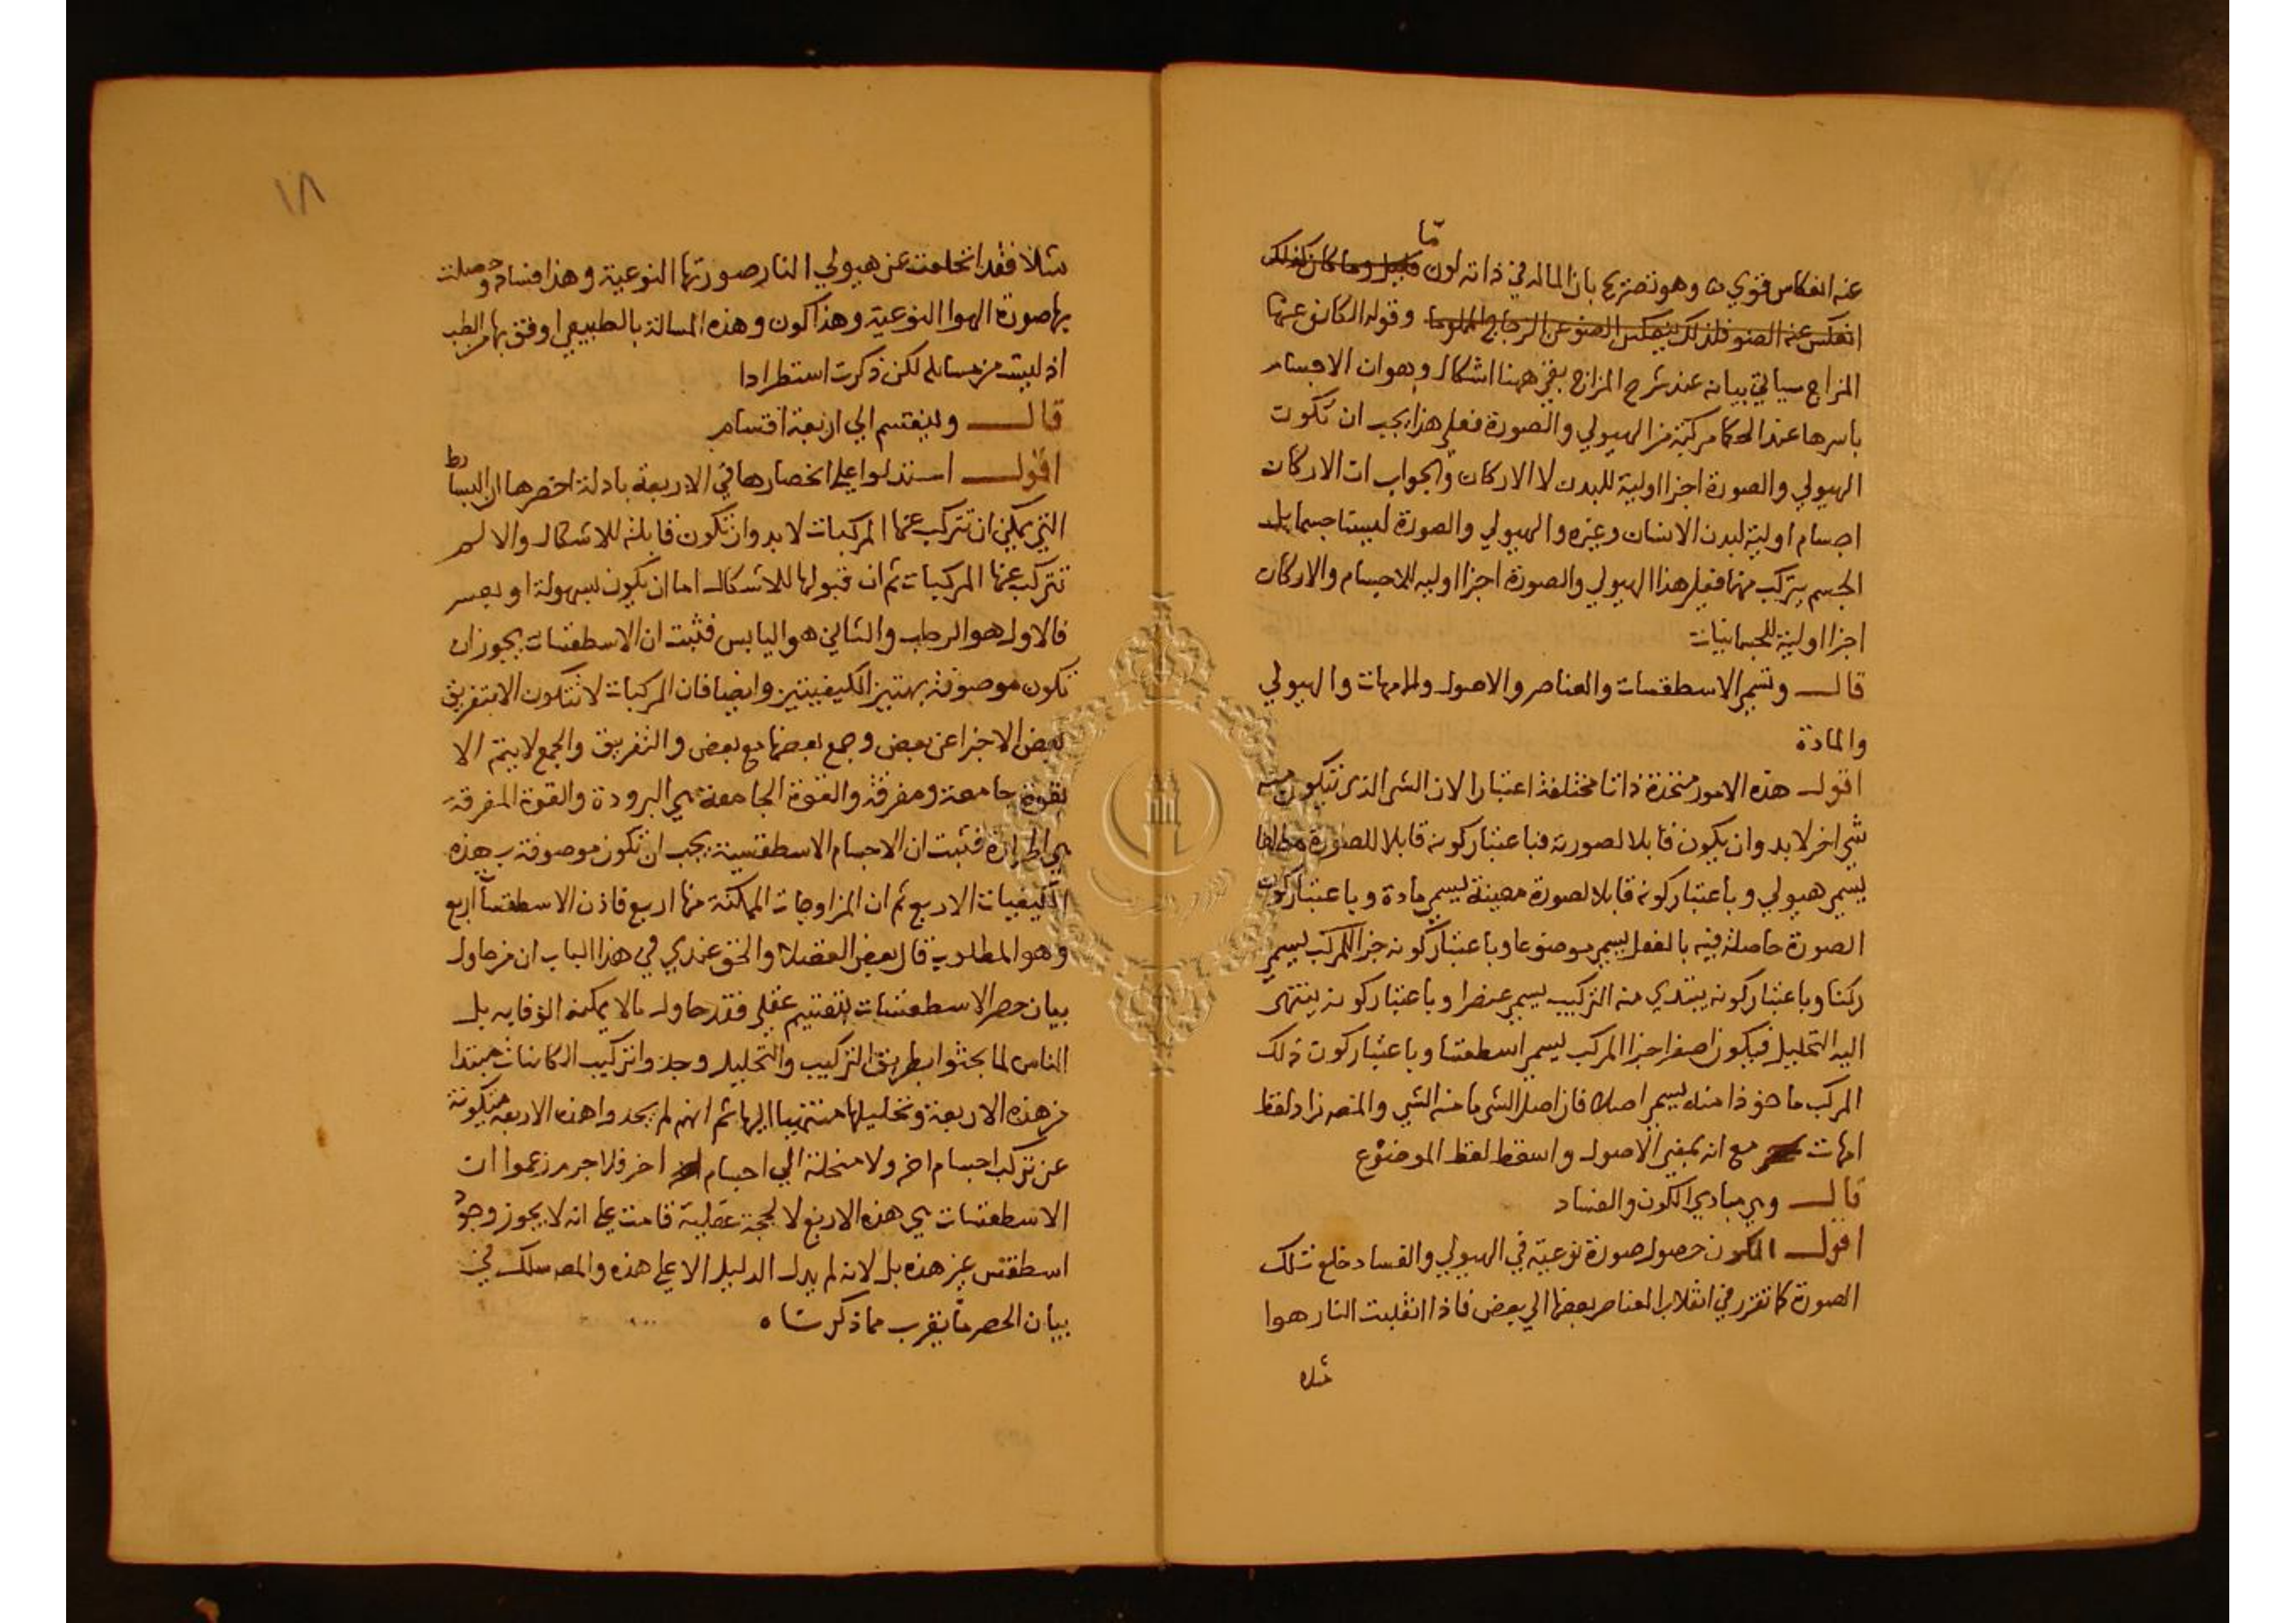 ما
عنه انعكاس قوي ه وهو تصريح بان الماله في ذاته لون قليل وما كان كذلك
انعكس عنه الضو فلذلك ينعكس الضو عن الزجاج المملوما وقوله الكاين عنها
المزاج سياتي بيانه عند شرح المزاج بقي ههنا اشكال وهوان الاجسام
باسرها عند الحكما مركبة من الهيولي والصورة فعلي هذا يجب ان تكون
الهيولي والصورة اجزا اولية للبدن لا الاركان والجواب ان الاركان
اجسام اولية لبدن الانسان وغيره والهيولي والصورة ليستا جسما بل
الجسم يتركب منهما فعلي هذا الهيولي والصورة اجزا اوليه للاجسام والاركان
اجزا اولية للجسمانيات
قال وتسمي الاسطقسات والعناصر والاصول والامهات والهيولي
والمادة
اقول هذه الامور متحدة ذاتا مختلفة اعتبارا لان الشي الذي تتكون منه
شي اخر لابد وان يكون قابلا لصورته فباعتبار كونه قابلا للصورة مطلقا
يسمي هيولي وباعتبار كونه قابلا لصورة معينة يسمي مادة وباعتبار كون
الصورة حاصلة فيه بالفعل يسمي موضوعا وباعتبار كونه جزا للمركب يسمي
ركنا وباعتبار كونه يبتدي منه التركيب يسمي عنصرا وباعتبار كونه ينتهي
اليه التحليل فيكون اصغر اجزا المركب يسمي اسطقسا وباعتبار كون ذلك
المركب ماخوذا منه يسمي اصلا فان اصل الشي ما منه الشي والمصه زاد لفظ
امهات مع انه بمعني الاصول واسقط لفظ الموضوع
قال وهي مبادي الكون والفساد
اقول الكون حصول صورة نوعية في الهيولي والفساد خلع تلك
الصورة كما تقرر في انقلاب العناصر بعضها الي بعض فاذا انقلبت النار هوا
مثلا
١٨
مثلا فقد انخلعت عن هيولي النار صورتها النوعية وهذا فساد وحصلت
بها صورة الهوا النوعية وهذا كون وهذه المسالة بالطبيعي اوفق بها من الطب
اذ ليست من مسايله لكن ذكرت استطرادا
قال وينقسم الي اربعة اقسام
اقول استدلوا علي انحصارها في الاربعة بادلة اخصرها ان البسايط
التي يمكن ان تتركب عنها المركبات لابد وان تكون قابلة للاشكال والا لم
تتركب عنها المركبات ثم ان قبولها للاشكال اما ان يكون بسهولة او بعسر
فالاول هو الرطب والثاني هو اليابس فثبت ان الاسطقسات يجوز ان
تكون موصوفة بهتين الكيفيتين وايضا فان المركبات لا تتكون الا بتفريق
بعض الاجزا عن بعض وجمع بعضها مع بعض والتفريق والجمع لا يتم الا
بقوة جامعة ومفرقة والقوة الجامعة هي البرودة والقوة المفرقة
هي الحرارة فثبت ان الاجسام الاسطقسية يجب ان تكون موصوفة بهذه
الكيفيات الاربع ثم ان المزاوجات الممكنة منها اربع فاذن الاسطقسات اربع
وهو المطلوب قال بعض الفضلا والحق عندي في هذا الباب ان من حاول
بيان حصر الاسطقسات بتقسيم عقلي فقد حاول ما لا يمكنه الوفا به بل
الناس لما بحثوا بطريق التركيب والتحليل وجدوا تركيب الكاينات مبتدا
من هذه الاربعة وتحليلها منتهيا اليها ثم انهم لم يجدوا هذه الاربعه متكونة
عن تركب اجسام اخر ولا منحلة الي اجسام اخر فلا جرم زعموا ان
الاسطقسات هي هذه الاربع لا لحجة عقلية قامت علي انه لا يجوز وجود
اسطقس غير هذه بل لانه لم يدل الدليل الا علي هذه والمصه سلك في
بيان الحصر ما يقرب مما ذكرناه